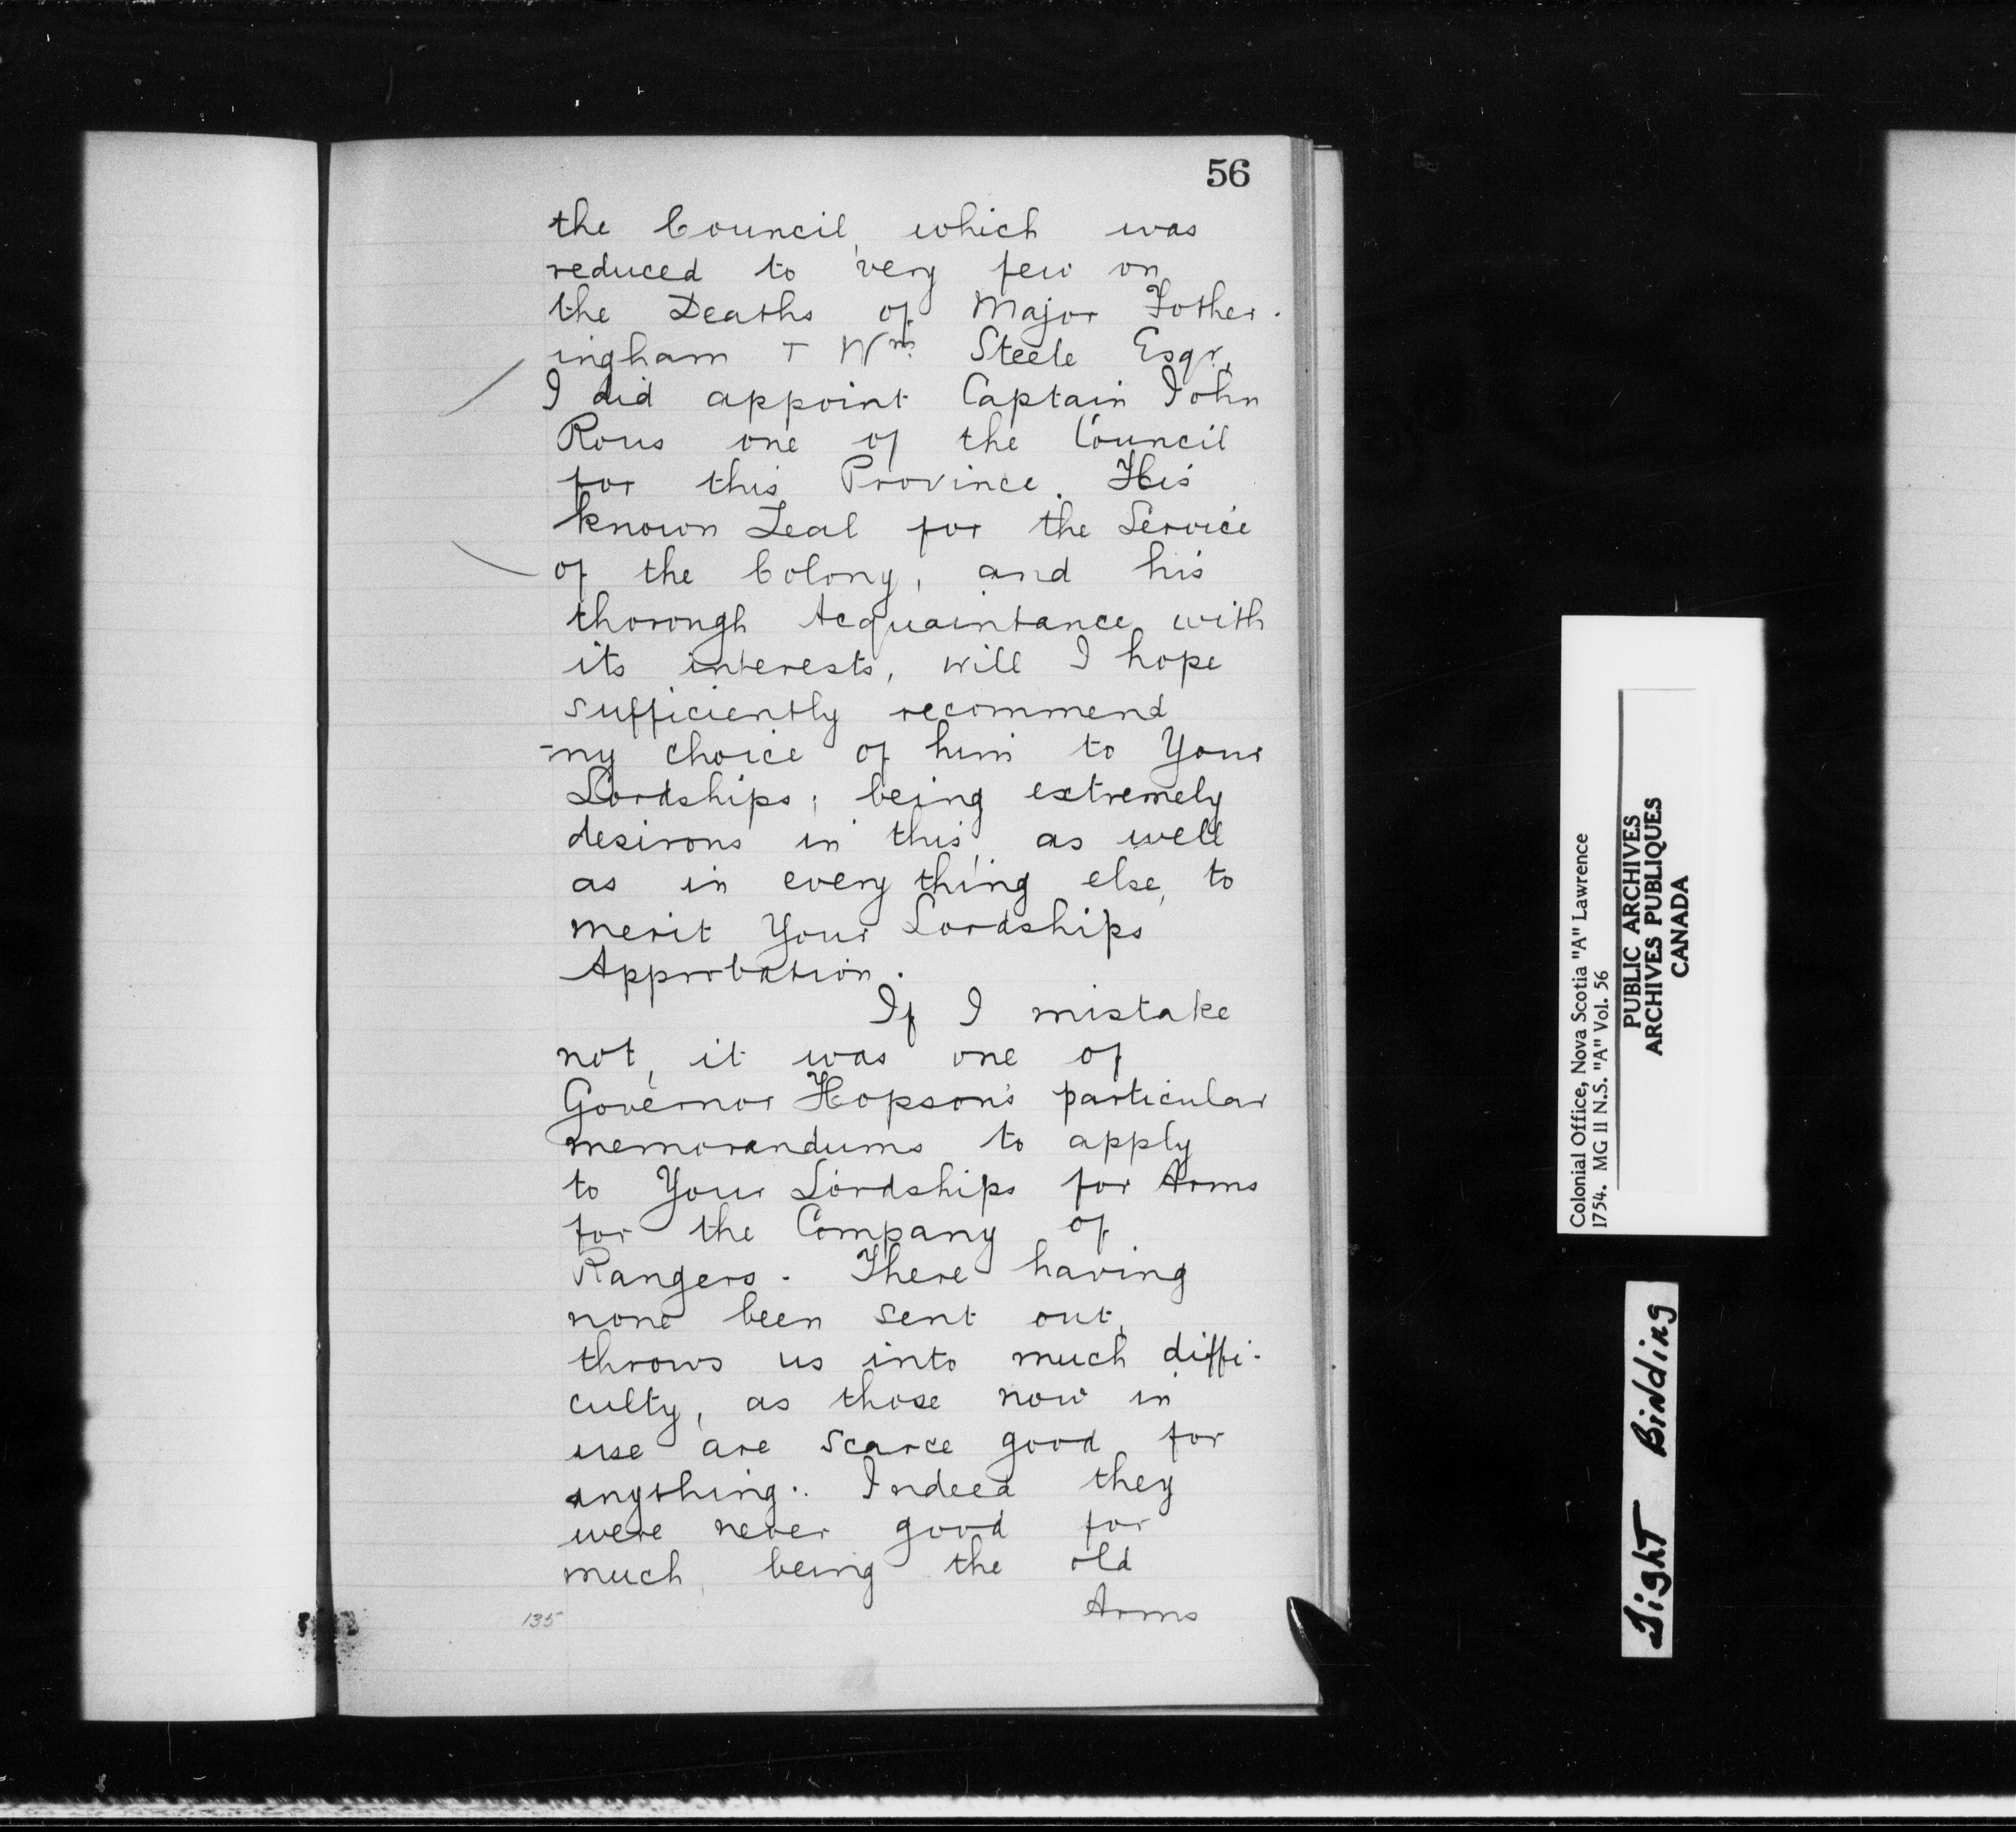 56
the Council, which was
reduced to very few on
the Deaths of Major Fother-
ingham + Wm. Steele Esqr,
I did appoint Captain John
Rous one of the Council
for this Province. His
known Zeal for the Service
of the Colony, and his
thorough Acquaintance with
its interests, will I hope
sufficiently recommend
my choice of him to Your
Lordships; being extremely
desirous in this, as well
as in every thing else, to
merit Your Lordships
Approbation.
If I mistake
not, it was one of
Governor Hopson's particular
memorandums to apply
to Your Lordships for Arms
for the Company of
Rangers. There having
none been sent out,
throws us into much diffi-
culty, as those now in
use are scarce good for
anything.. Indeed they
were never good for
much, being the old
Arms
135
Colonial Office, Nova Scotia "A" Lawrence
1754. MG 11 N.S. "A" Vol. 56
PUBLIC ARCHIVES
ARCHIVES PUBLIQUES
CANADA
Tight Binding